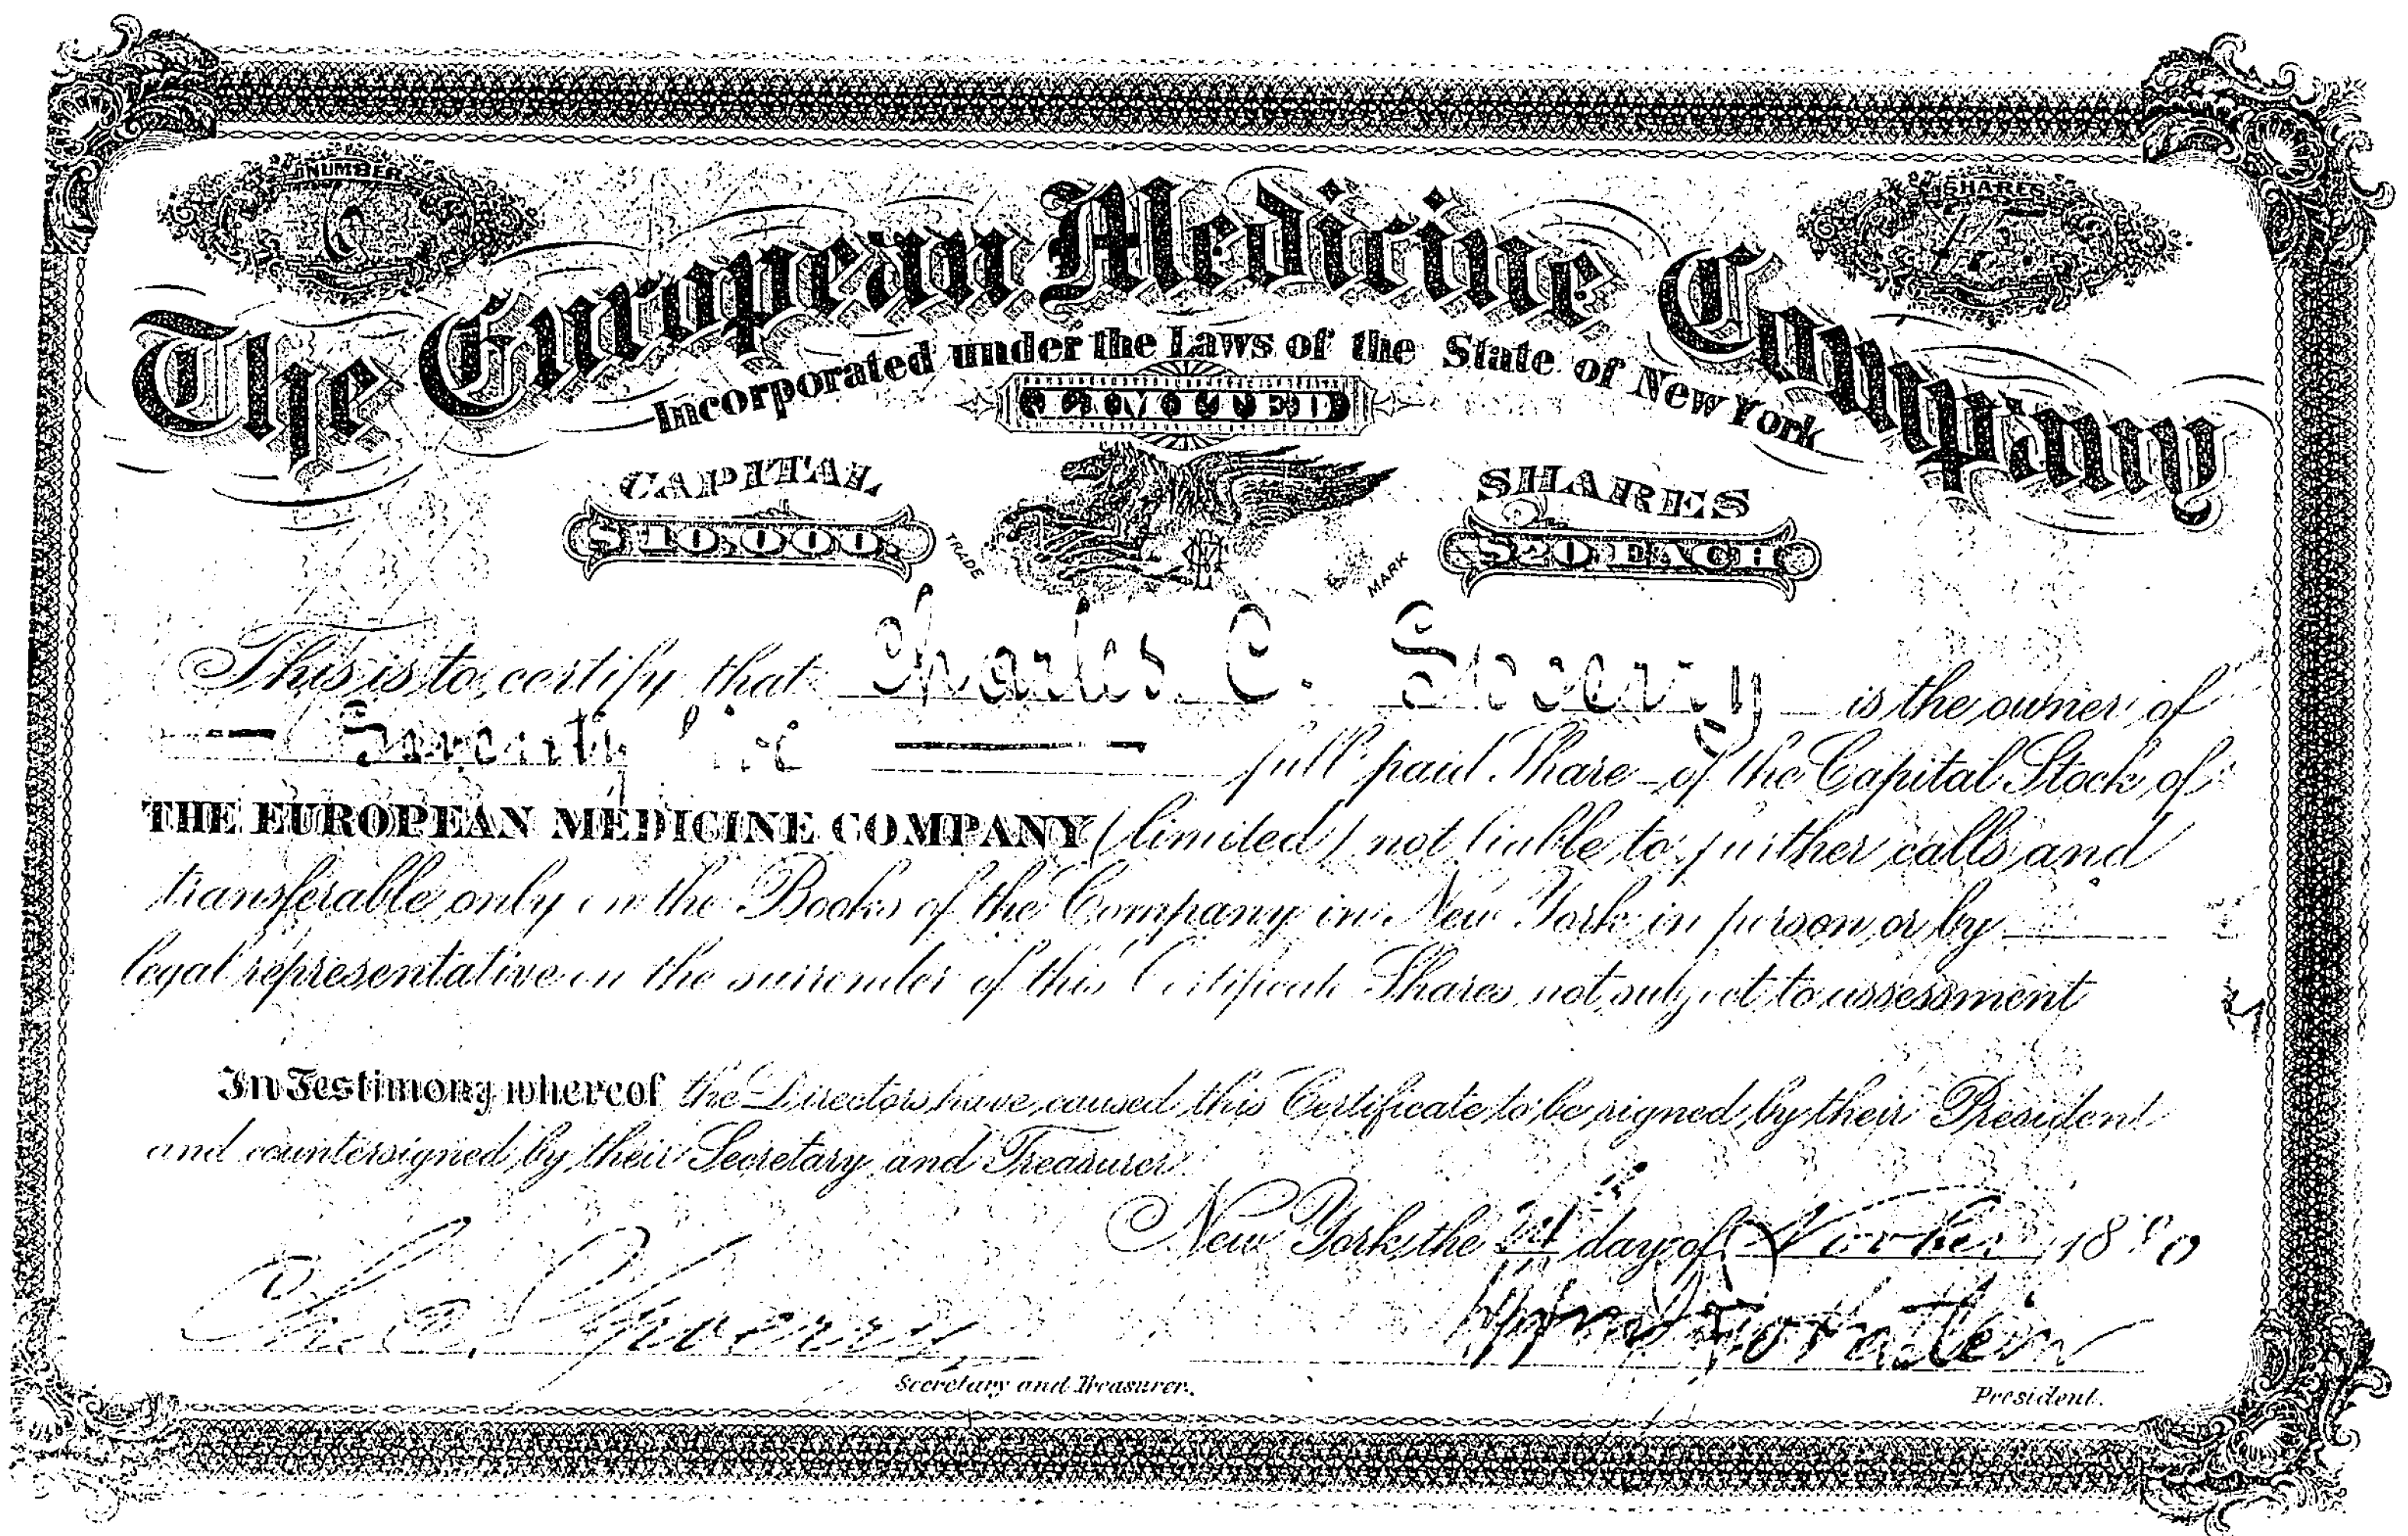 NUMBER
6
SHARES
The European Medicine Company
Incorporated under the Laws of the State of New York
LIMITED
CAPITAL
$10,000.
TRADE
MARK
SHARES
$20 EACH
This is to certify that Charles C. is the owner of
Seventy full paid Share of the Capital Stock of
THE EUROPEAN MEDICINE COMPANY (limited) not liable to further calls and
transferable only on the Books of the Company in New York in person or by
legal representative on the surrender of this Certificate Shares not subject to assessment
In Testimony whereof the Directors have caused this Certificate to be signed by their President
and countersigned by their Secretary and Treasurer.
New York, the day of 18
Secretary and Treasurer.
President.